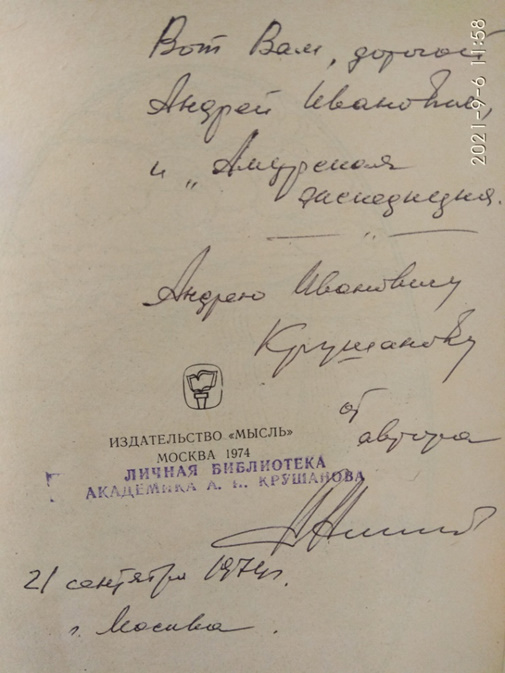 Вот Вам, дорогой
Андрей Иванович,
и „Амурская
экспедиция.
Андрею Ивановичу
Крушанову
от
автора
ИЗДАТЕЛЬСТВО «МЫСЛЬ»
МОСКВА 1974
ЛИЧНАЯ БИБЛИОТЕКА
АКАДЕМИКА А. И. КРУШАНОВА
21 сентября 1974г.
г. Москва.
2021-9-6 11:58